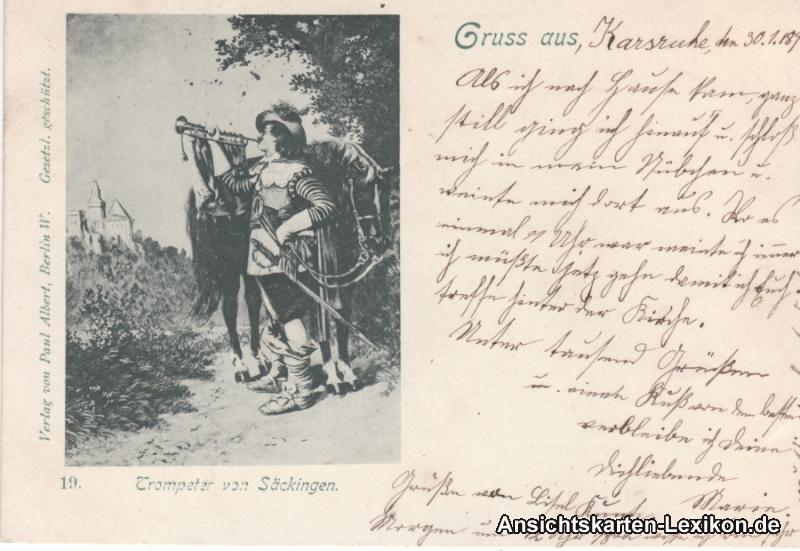 Gruss aus, Karsruhe, den 30.1.189
Als ich nach Hause kam, ganz
still ging ich hinauf u. schloß
mich in mein Stübchen u.
weinte mich dort aus. Wo es
einmal Uhr war meinte ich immer
ich müßte jetz gehn damit ich Euch
treffe hinter der Kirche.
Unter tausend Grüßen
u. einem Kuß von dem besten
verbleibe ich Deine
Dichliebende
Marie.
Grüße von Lisel
Morgen um 12 Uhr
Verlag von Paul Albert, Berlin W. Gesetzl. geschützt.
19. Trompeter von Säckingen.
Ansichtskarten-Lexikon.de